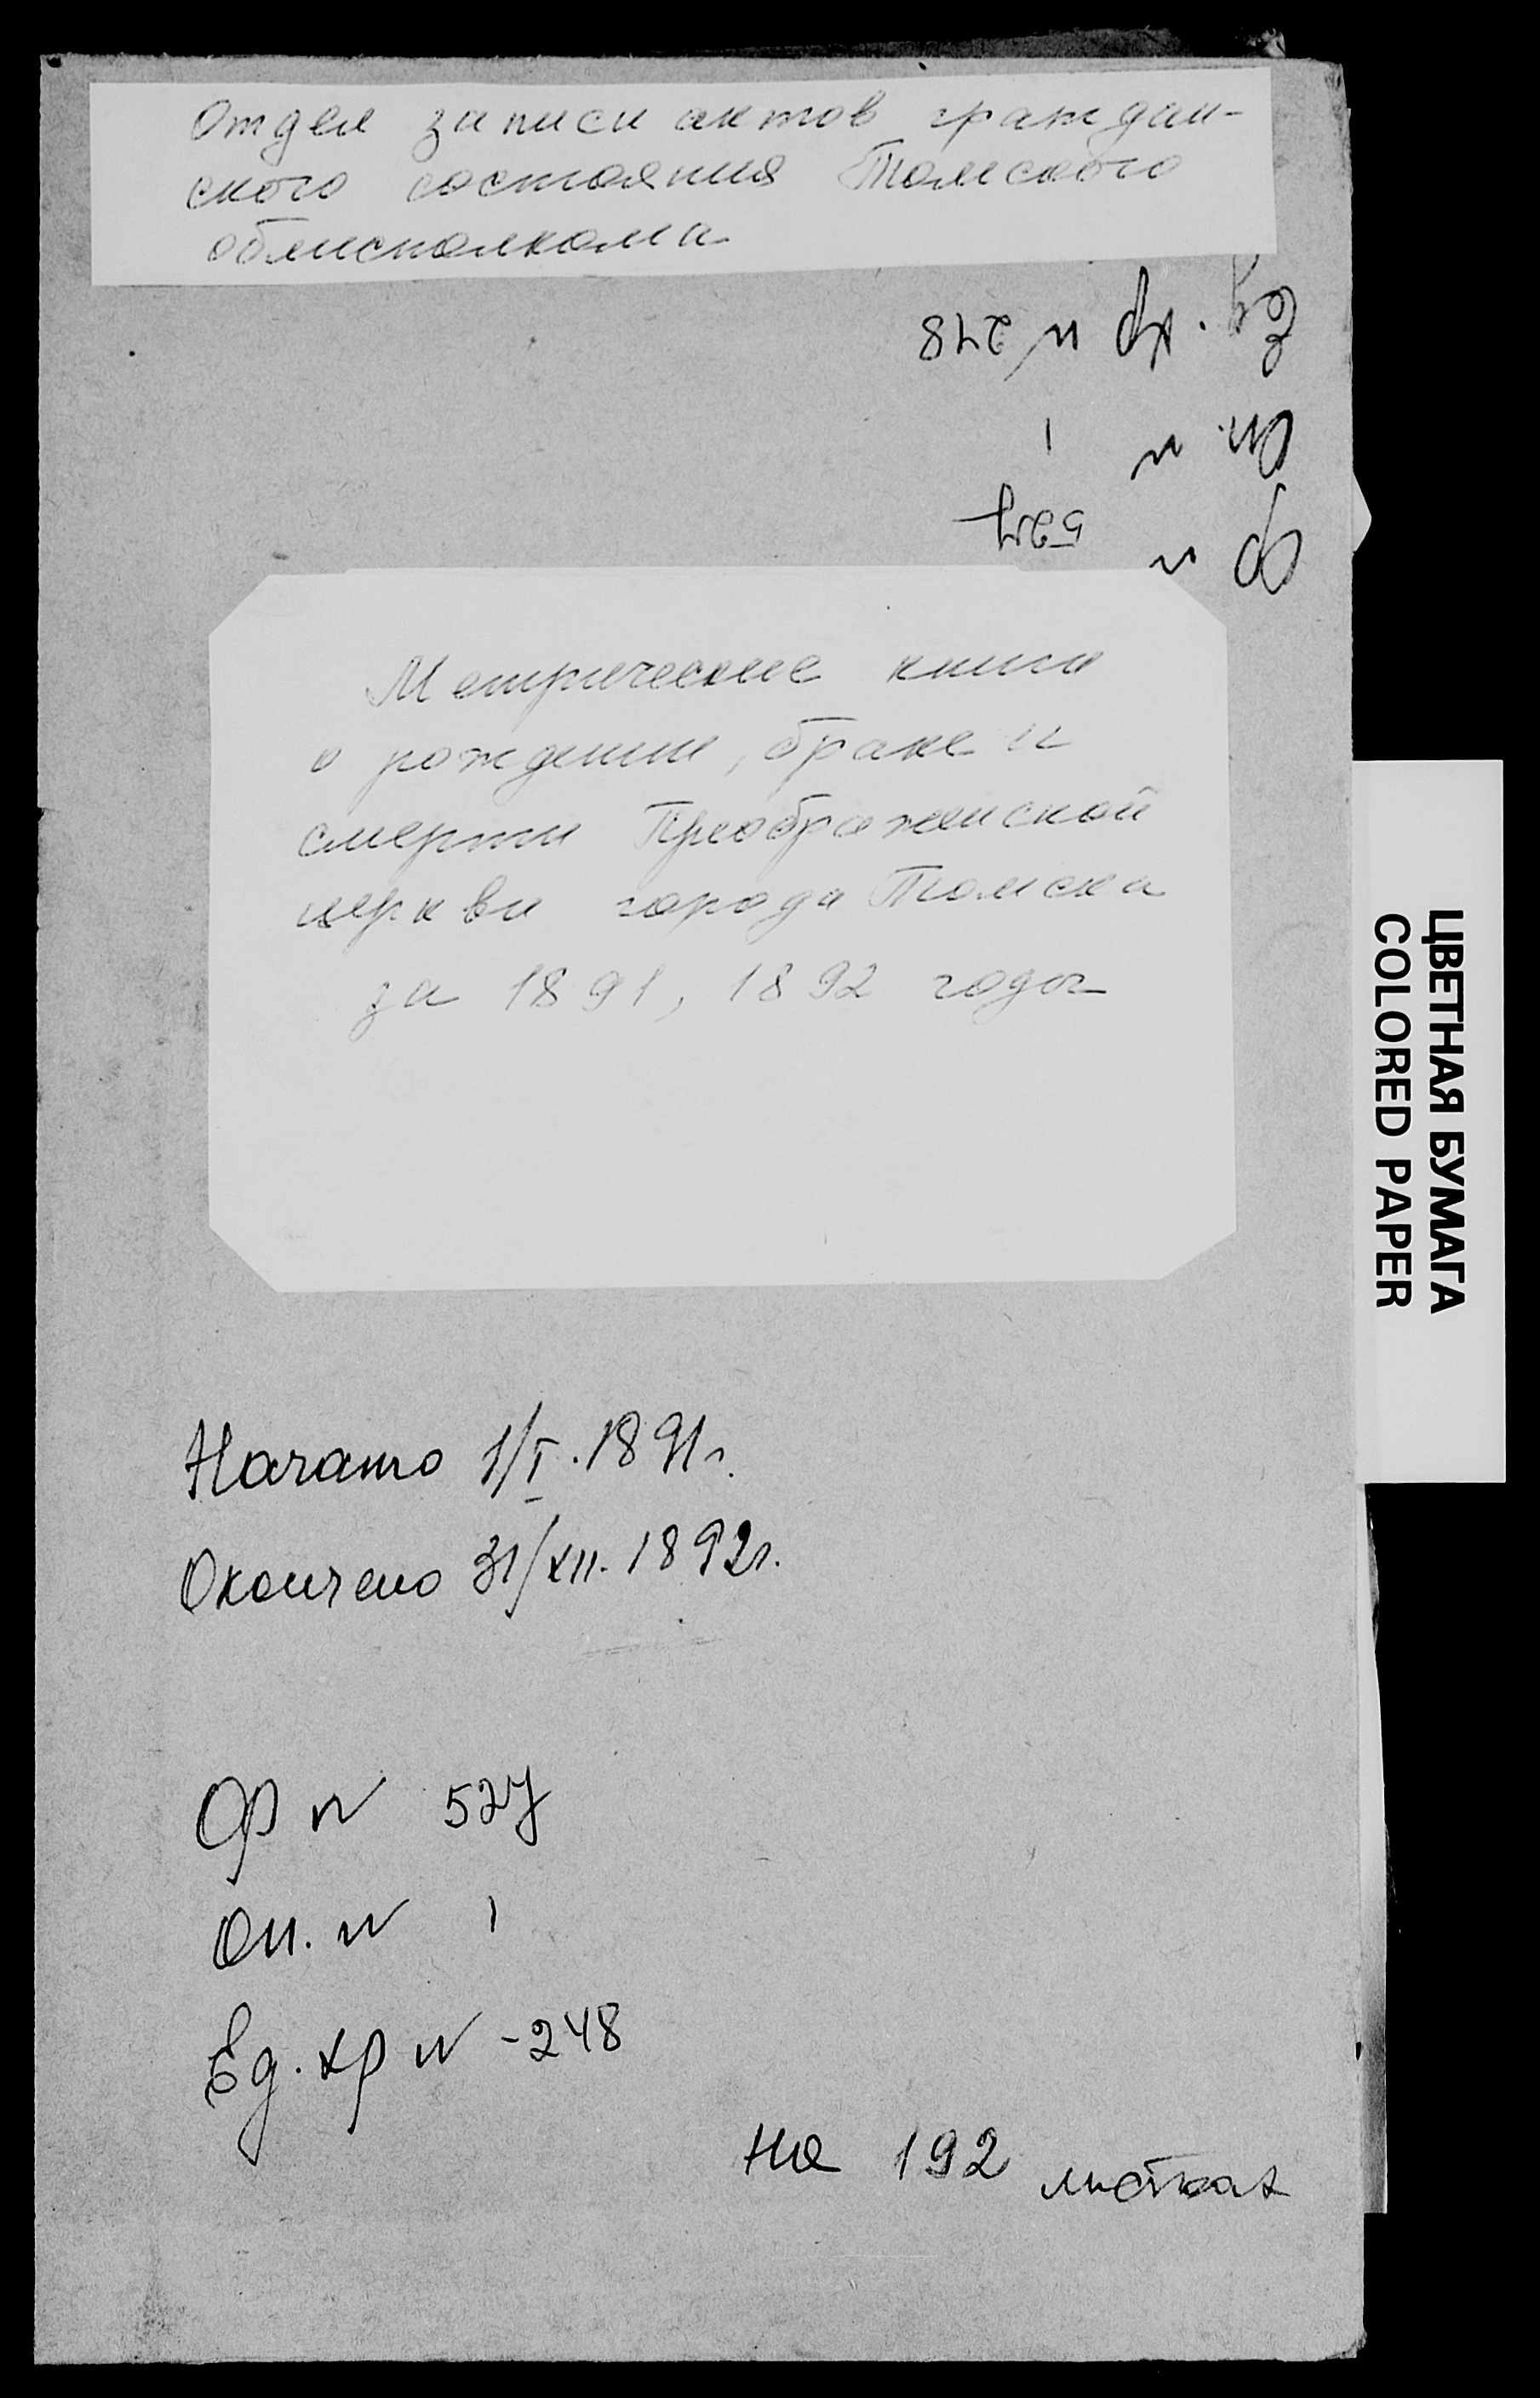 Отдел записи актов граждан-
ского состояния Томского
облисполкома
Ед. хр N 248
Оп. N 1
Ф N 527
Метрические книги
о рождении, браке и
смерти Преображенской
церкви города Томска
за 1891, 1892 годы
ЦВЕТНАЯ БУМАГА
COLORED PAPER
Начато 1/I. 1891г.
Окончено 31/XII. 1892г.
Ф N 527
Оп. N 1
Ед. хр N - 248
на 192 листах